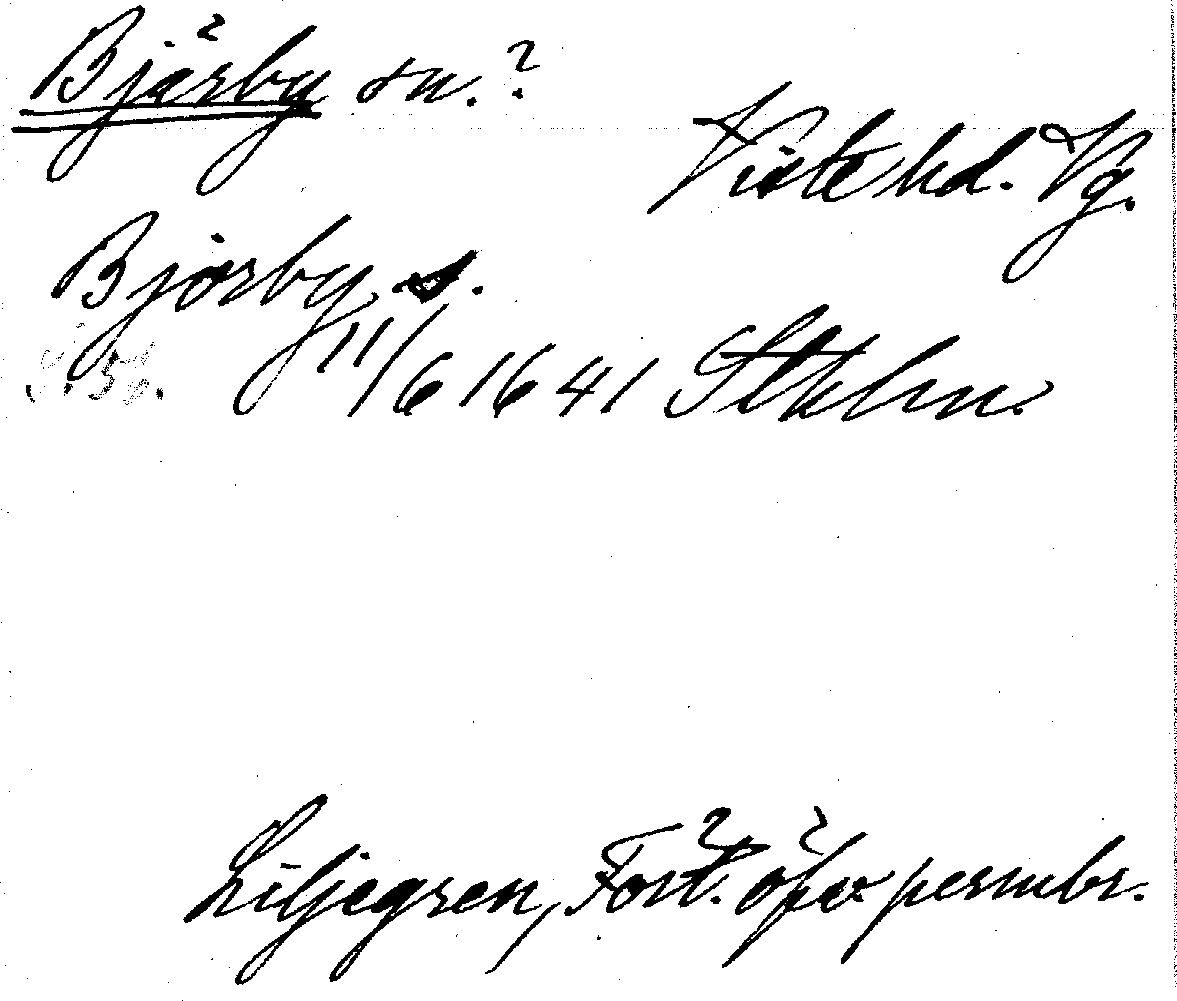 Bjärby sn.?
Viste hd. Vg.
Bjorby s.
11/6 1641 Stkhm.
Liljegren, Fört. öfv. permbr.